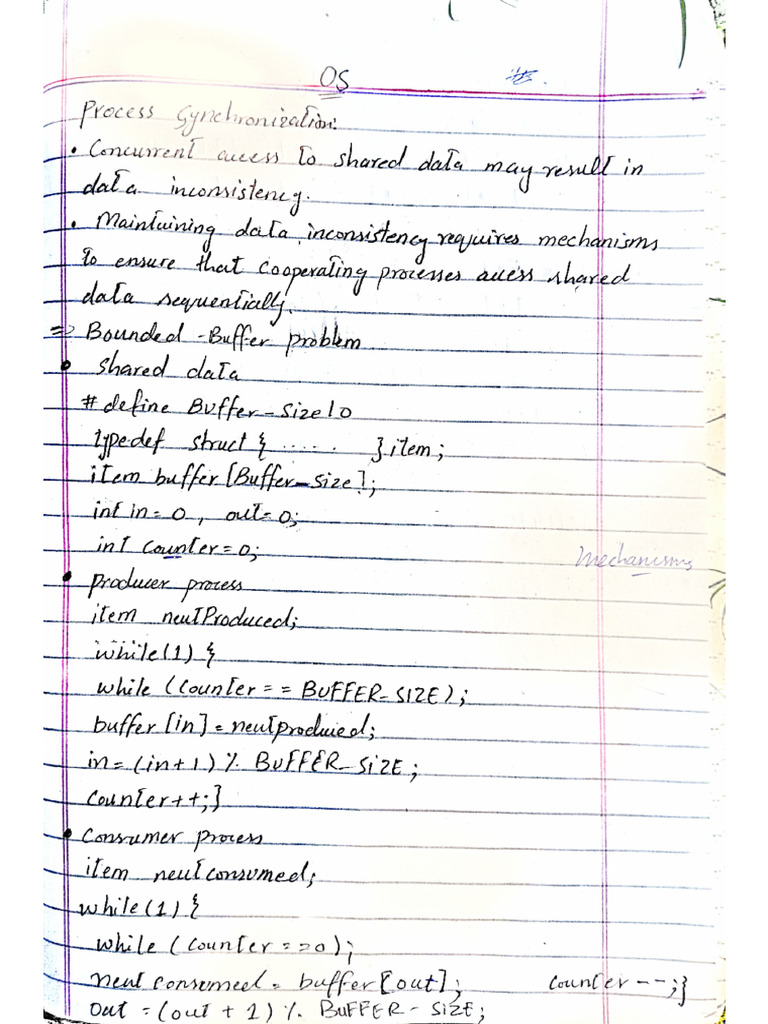 OS
Process Synchronization:
• Concurrent access to shared data may result in
data inconsistency.
• Maintaining data inconsistency requires mechanisms
to ensure that cooperating processes access shared
data sequentially.
=> Bounded-Buffer problem
• shared data
# define Buffer-Size 10
typedef struct { ...... } item;
item buffer [Buffer-size];
int in = 0, out = 0;
int counter = 0;
Mechanisms
• Producer process
item nextProduced;
while(1) {
while (counter == BUFFER-SIZE);
buffer [in] = nextproduced;
in = (in+1) % BUFFER-SIZE;
counter++;}
• Consumer process
item nextconsumed;
while(1) {
while (counter == 0);
next consemed = buffer [out]; counter--;}
out = (out + 1) % BUFFER-SIZE;